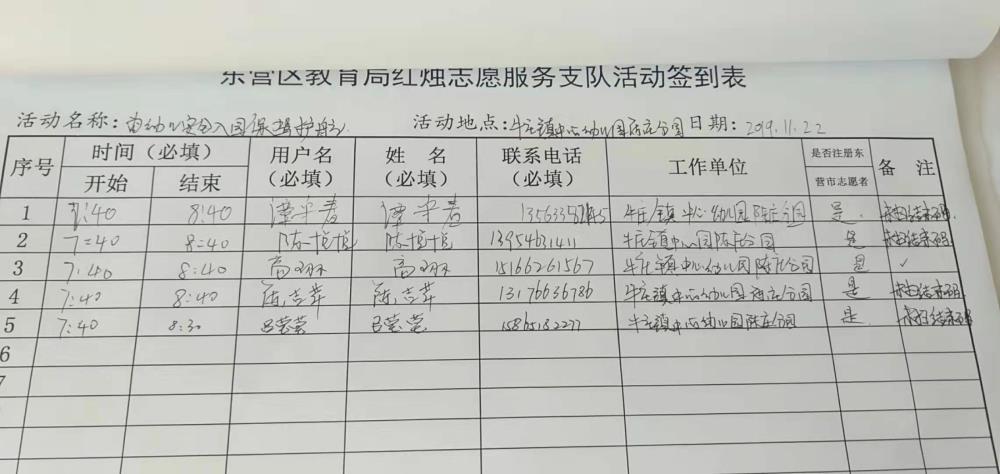 东营区教育局红烛志愿服务支队活动签到表
活动名称: 为幼儿安全入园保驾护航 活动地点: 牛庄镇中心幼儿园陈庄分园 日期: 2019.11.22
序号 时间（必填） 用户名（必填） 姓 名（必填） 联系电话（必填） 工作单位 是否注册东营市志愿者 备 注
开始 结束
1 7:40 8:40 牛庄镇中心幼儿园陈庄分园 是 未扫结束码
2 7:40 8:40 陈悦悦 陈悦悦 13954631411 牛庄镇中心园陈庄分园 是 未扫结束码
3 7:40 8:40 高羽 高羽 15166261567 牛庄镇中心幼儿园陈庄分园 是 ✓
4 7:40 8:40 陈吉苹 陈吉苹 13176636786 牛庄镇中心幼儿园陈庄分园 是 未扫结束码
5 7:40 8:30 吕莹莹 吕莹莹 15865182277 牛庄镇中心幼儿园陈庄分园 是 未扫结束码
6
7